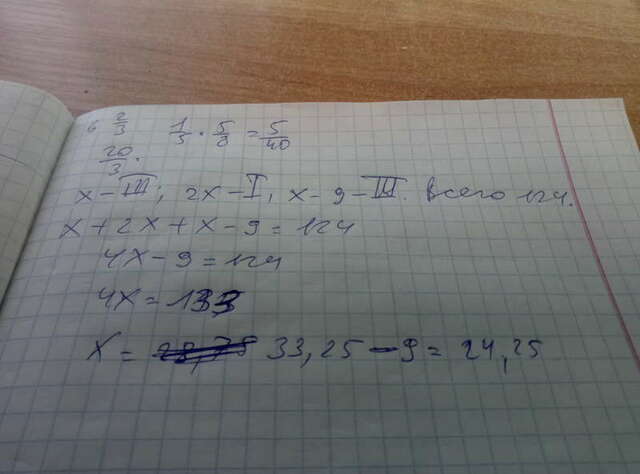 6 2/3 1/3 · 5/8 = 5/40
20/3 ·
x - III; 2x - I, x - 9 - III. Всего 124.
x + 2x + x - 9 = 124
4x - 9 = 124
4x = 133
x = 33,25 - 9 = 24,25